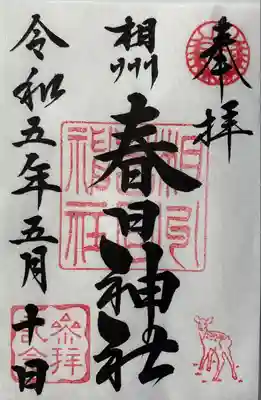 奉拝
相州
春日神社
令和五年五月十日
参拝記念